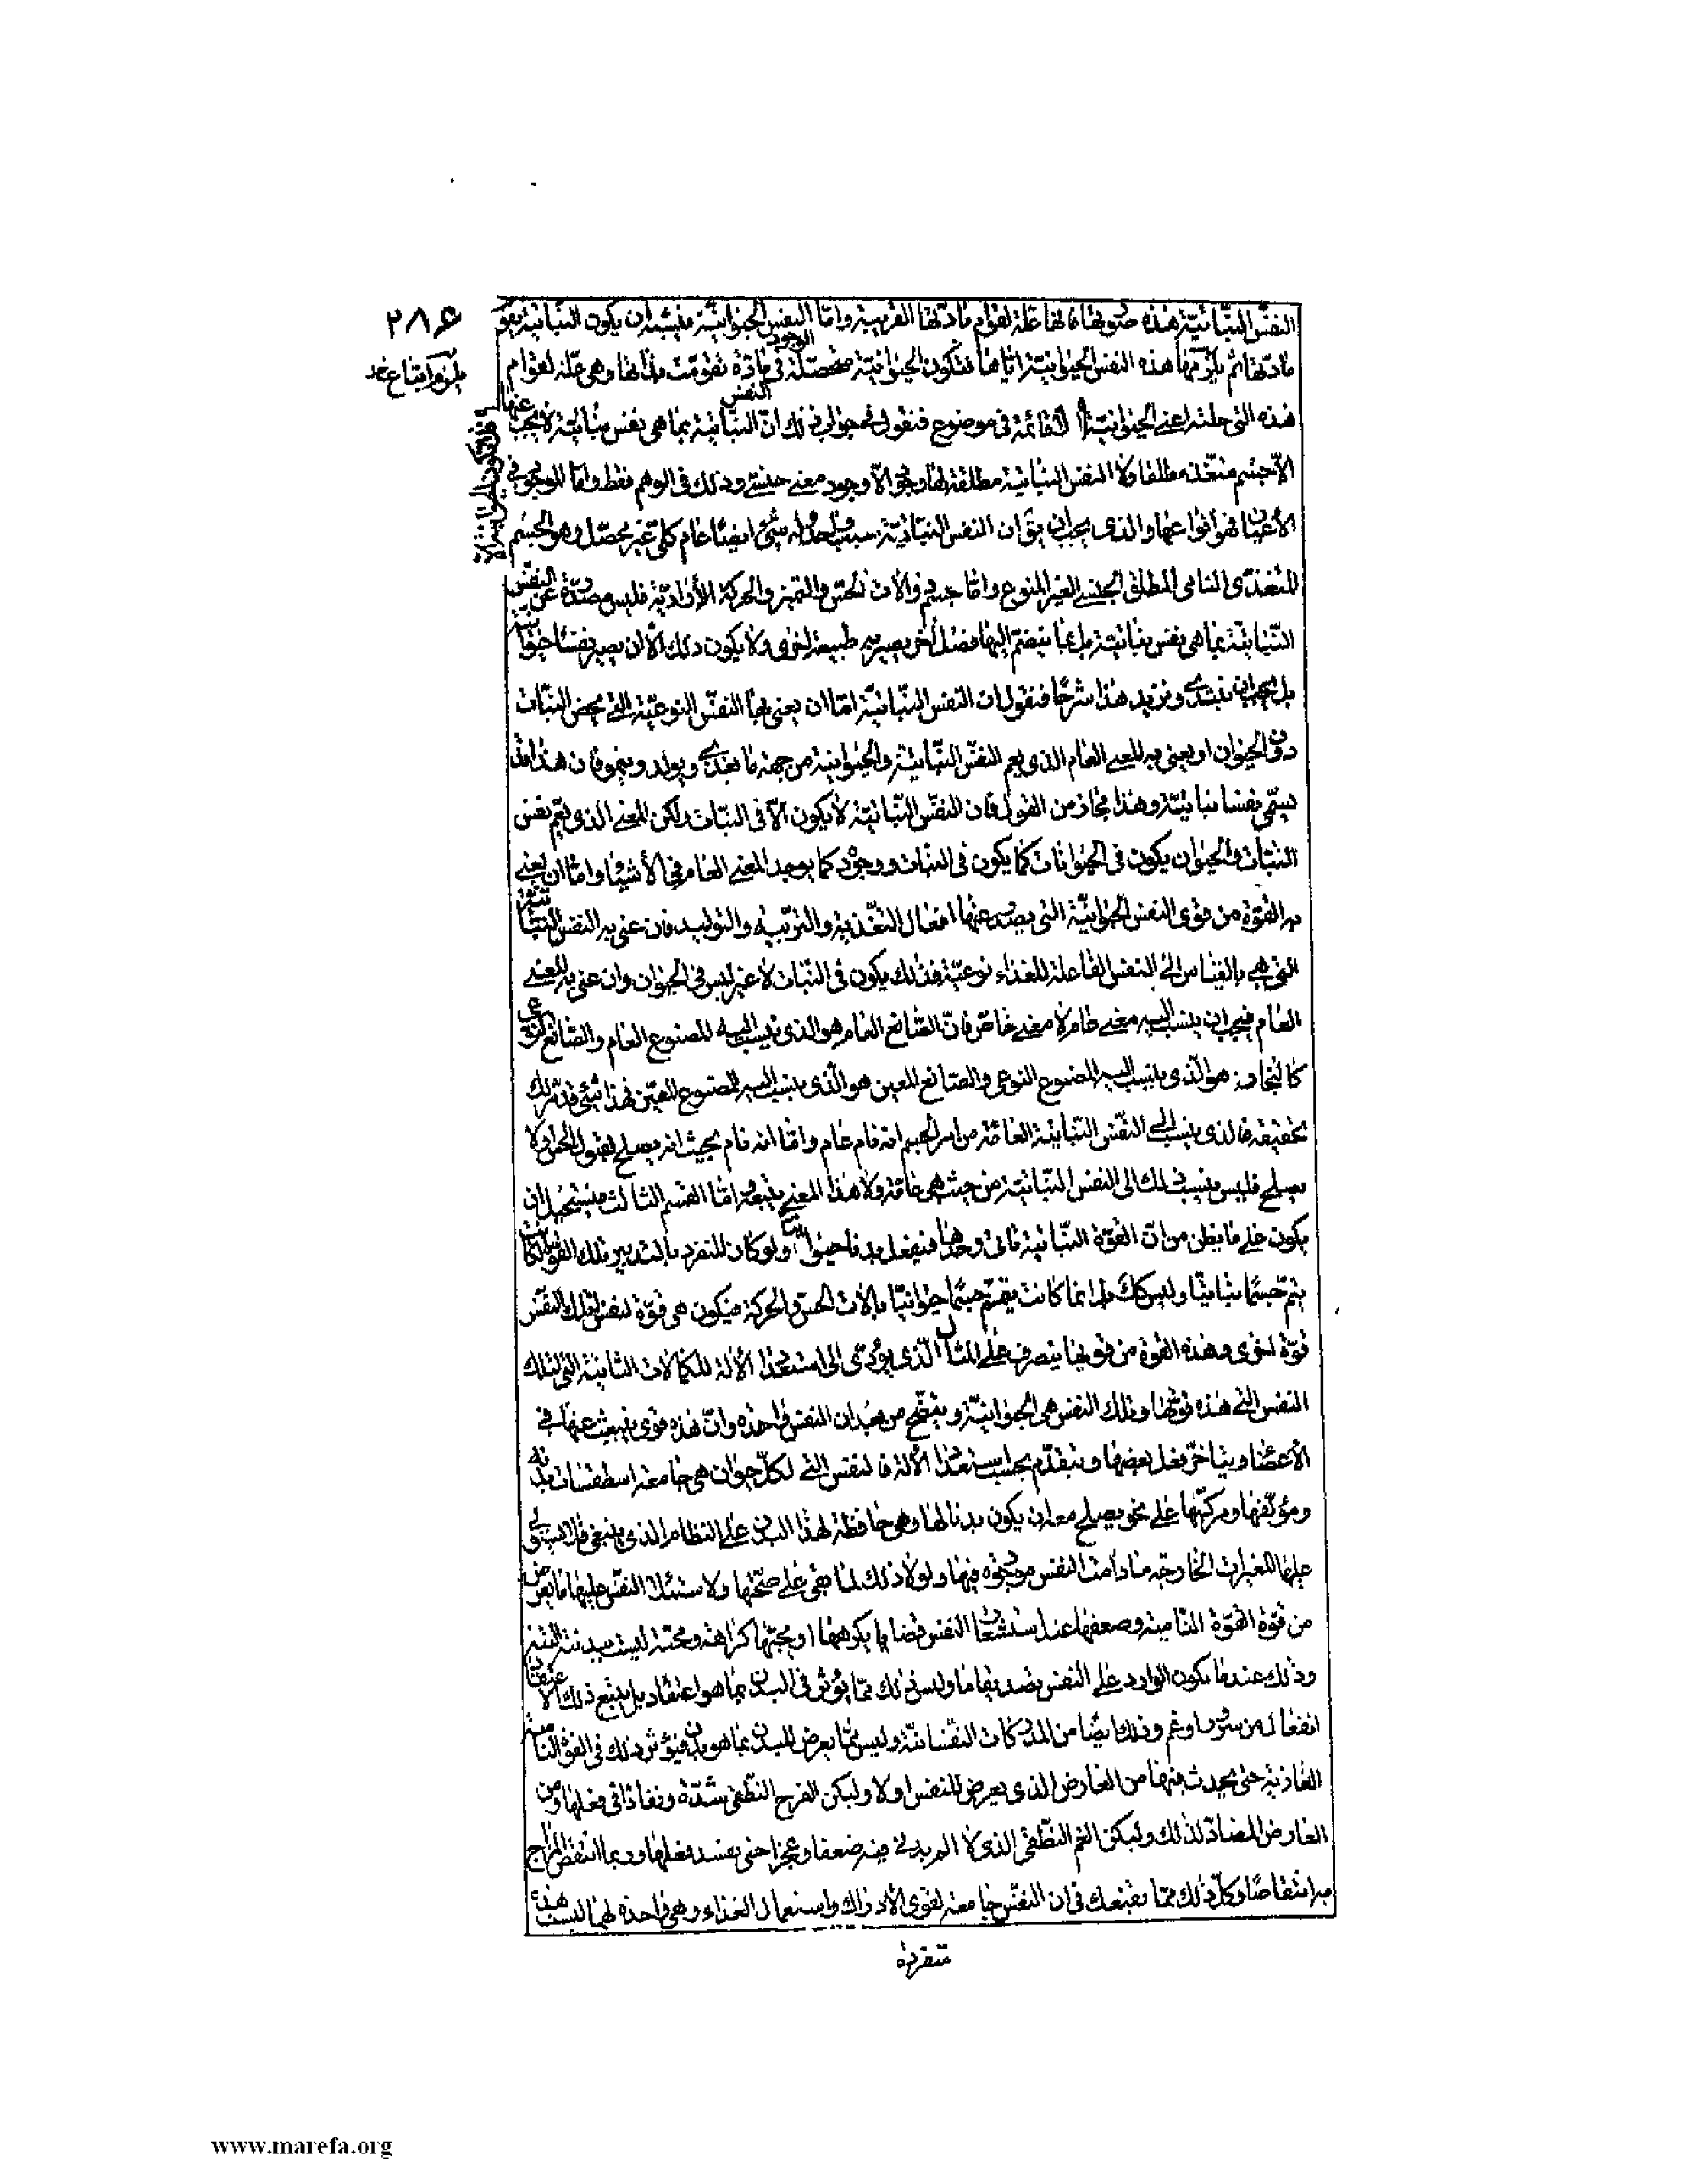 ٢٨٦
النفس النباتية هذه صورتها فانها علة لقوام مادتها القريبة واما النفس الحيوانية فيشبه ان يكون النباتية يقوم
مادتها ثم يلزمها هذه النفس الحيوانية اياها فتكون الحيوانية متحصلة الوجود في مادة تقومت بذاتها وهي علة لقوام
هذه التي حلته اعني الحيوانية القائمة في موضوع فنقول في جواب ذلك ان النفس النباتية بما هي نفس نباتية لا يجب عنها
الا جسم متغذ مطلقا ولا النفس النباتية مطلقة لها وجود الا وجود معنى جنسي وذلك في الوهم فقط واما الموجود في
الأعيان فهو انواعها والذي يجب ان يق ان النفس النباتية سبب واحد له شيء ايضا عام كلي غير محصل وهو الجسم
المتغذي النامي المطلق الجنسي الغير المنوع واما جسم ذو الات الحس والتميز والحركة الأرادية فليس مصدره عن النفس
النباتية بما هي نفس نباتية بل بما ينضم اليها فصل اخر يصير به طبيعة اخرى ولا يكون ذلك الا ان يصير نفسا حيوانية
بل يجب ان نبتدي ونزيد هذا شرحا فنقول ان النفس النباتية اما ان يعنى بها النفس النوعية التي تخص النبات
دون الحيوان او يعنى به المعنى العام الذي يعم النفس النباتية والحيوانية من جهة ما يغذي ويولد وينمو فان هذا قد
يسمى نفسا نباتية وهذا مجاز من القول فان النفس النباتية لا يكون الا في النبات ولكن المعنى الذي يعم نفس
النبات والحيوان يكون في الحيوانات كما يكون في النبات ووجوده كما يوجد المعنى العام في الأشياء واما ان يعنى
به القوة من قوى النفس الحيوانية التي يصدر عنها افعال التغذية والتربية والتوليد فان عنى به النفس النباتية
التي هي بالقياس الى النفس الفاعلة للغذاء نوعية فذلك يكون في النبات لا غير ليس في الحيوان وان عنى به المعنى
العام فيجب ان ينسب اليه معنى عام لا معنى خاص فان الصانع العام هو الذي ينسب اليه المصنوع العام والصانع النوعي
كالنجار هو الذي ينسب اليه المصنوع النوعي والصانع المعين هو الذي ينسب اليه المصنوع المعين فهذا شيء قد مر لك
تحقيقه فالذي ينسب الى النفس النباتية العامة من امر الجسم انه نام عام واما انه نام بحيث انه يصلح لقبول الحس او لا
يصلح فليس ينسب ذلك الى النفس النباتية من حيث هي عامة ولا هذا المعنى يتبعه اما القسم الثالث فيستحيل ان
يكون على ما يظن من ان القوة النباتية تأتي وحدها فيفعل بدنا حيوانيا ولو كان المنفرد بالتدبير تلك القوة لكانت
يتم جسما نباتيا وليس كك بل انما كانت يتم جسما حيوانيا بالات الحس والحركة فيكون هي قوة لنفس لتلك النفس
قوة اخرى وهذه القوة من قويها يتصرف على المثال الذي يؤدي الى استعداد الألة للكمالات الثانية التي لتلك
النفس التي هذه قوتها وتلك النفس هي الحيوانية ويتضح من بعد ان النفس واحدة وان هذه قوى ينبعث عنها في
الأعضاء ويتأخر فعل بعضها ويتقدم بحسب استعداد الألة فالنفس التي لكل حيوان هي جامعة اسطقسات بدنه
ومؤلفها ومركبها على نحو يصلح معه ان يكون بدنا لها وهي حافظة لهذا البدن على النظام الذي ينبغي فلا يستولي
عليها المغيرات الخارجة ما دامت النفس موجودة فيها ولولا ذلك لما بقى على صحتها ولاستيلاء النفس عليها ما يعرض
من قوة القوة النامية وضعفها عند استشعار النفس قضايا يكرهها او يحبها كراهة ومحبة ليست ببدنية البتة
وذلك عندما يكون الوارد على النفس تصديقا ما وليس ذلك مما يؤثر في البدن بما هو اعتقاد بل يتبع ذلك الاعتقاد
انفعال من سرور او غم وذلك ايضا من المدركات النفسانية وليس مما يعرض للبدن بما هو بدن فيؤثر ذلك في القوة النامية
الغاذية حتى يحدث فيها من العارض الذي يعرض للنفس اولا وليكن الفرح النطقي شدة ونفاذا في فعلها ومن
العارض المضاد لذلك وليكن الغم النطقي الذي لا الم بدني فيه ضعفا وعجزا حتى يفسد فعلها وربما انتقض المزاج
به انتقاضا وكل ذلك مما يقنعك في ان النفس جامعة لقوى الأدراك واستعمال الغذاء وهي واحدة لهما ليست هذه
منفردة
www.marefa.org